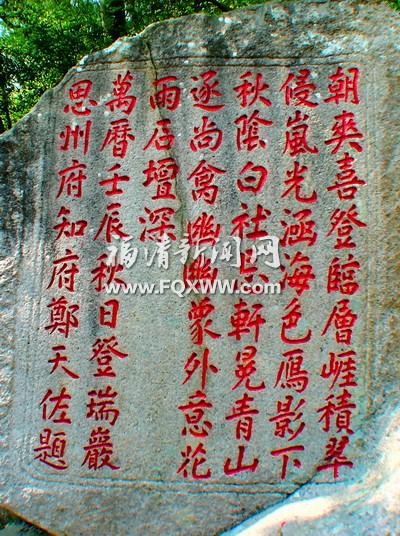 朝爽喜登臨層崕積翠
侵嵐光涵海色鴈影下
秋陰白社忘軒冕青山
逐尚禽幽幽象外意花
雨石壇深
萬曆壬辰秋日登瑞巖
思州府知府鄭天佐題
福清新闻网
www.FQXWW.com